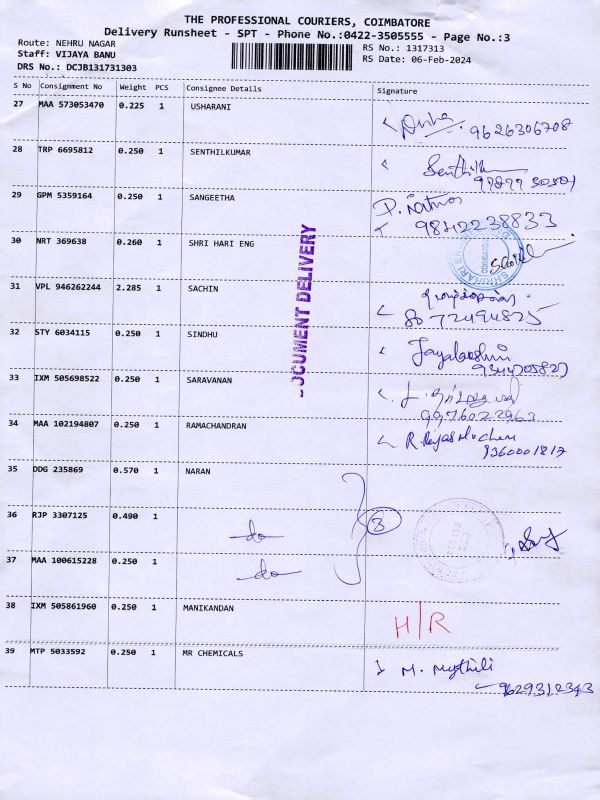 THE PROFESSIONAL COURIERS, COIMBATORE
Delivery Runsheet - SPT - Phone No.:0422-3505555 - Page No.:3
Route: NEHRU NAGAR
Staff: VIJAYA BANU
DRS No.: DCJB131731303
RS No.: 1317313
RS Date: 06-Feb-2024
S No Consignment No Weight PCS Consignee Details Signature
27 MAA 573053470 0.225 1 USHARANI
9626306708
28 TRP 6695812 0.250 1 SENTHILKUMAR
Senthilkum
29 GPM 5359164 0.250 1 SANGEETHA
9842238833
30 NRT 369638 0.260 1 SHRI HARI ENG
31 VPL 946262244 2.285 1 SACHIN
8072494875
32 STY 6034115 0.250 1 SINDHU
Jayalakshmi
33 IXM 505698522 0.250 1 SARAVANAN
9976022963
34 MAA 102194807 0.250 1 RAMACHANDRAN
9360001817
35 DDG 235869 0.570 1 NARAN
36 RJP 3307125 0.490 1 do
3
37 MAA 100615228 0.250 1 do
38 IXM 505861960 0.250 1 MANIKANDAN
H/R
39 MTP 5033592 0.250 1 MR CHEMICALS
M. Mythili
9629312343
DOCUMENT DELIVERY